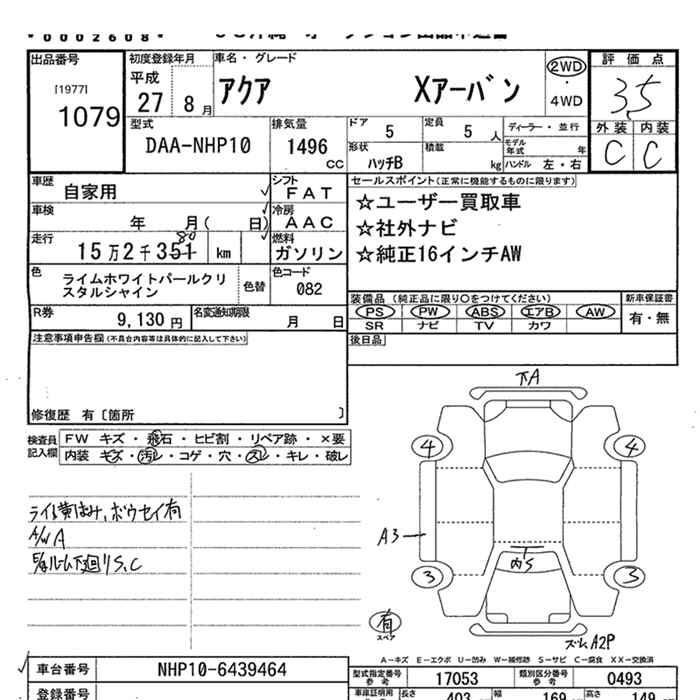 0002608
出品番号
[1977]
1079
初度登録年月
平成
27 8月
車名・グレード
アクア Xアーバン
2WD
・
4WD
評価点
3.5
外装 内装
C C
型式
DAA-NHP10
排気量
1496
cc
ドア
5
定員
5 人
ディーラー・並行
形状
ハッチB
積載
kg
モデル年式 年
ハンドル 左・右
車歴
自家用
シフト
FAT
車検
年 月( 日)
冷房
AAC
走行
15万2千351 km
80
燃料
ガソリン
色
ライムホワイトパールクリ
スタルシャイン
色替
色コード
082
R券
9,130 円
名変通知期限
月 日
セールスポイント(正常に機能するものに限ります)
☆ユーザー買取車
☆社外ナビ
☆純正16インチAW
装備品 (純正品に限り○をつけてください)
新車保証書
PS PW ABS エアB AW
SR ナビ TV カワ
有・無
後日品
注意事項申告欄(不具合内容等は具体的に記入して下さい)
修復歴 有〔箇所 〕
検査員
記入欄
FW キズ・飛石・ヒビ割・リペア跡・×要
内装 キズ・汚レ・コゲ・穴・スレ・キレ・破レ
ライト黄ばみ、ボウセイ有
A/W A
下廻りS、C
下A
4
4
A3
3
3
内S
有
スペア
A2P
A-キズ E-エクボ U-凹み W-補修跡 S-サビ C-腐食 XX-交換済
車台番号
NHP10-6439464
登録番号
型式指定番号
参考
17053
類別区分番号
参考
0493
車庫証明用
参考
長さ
403
幅
169
高さ
149